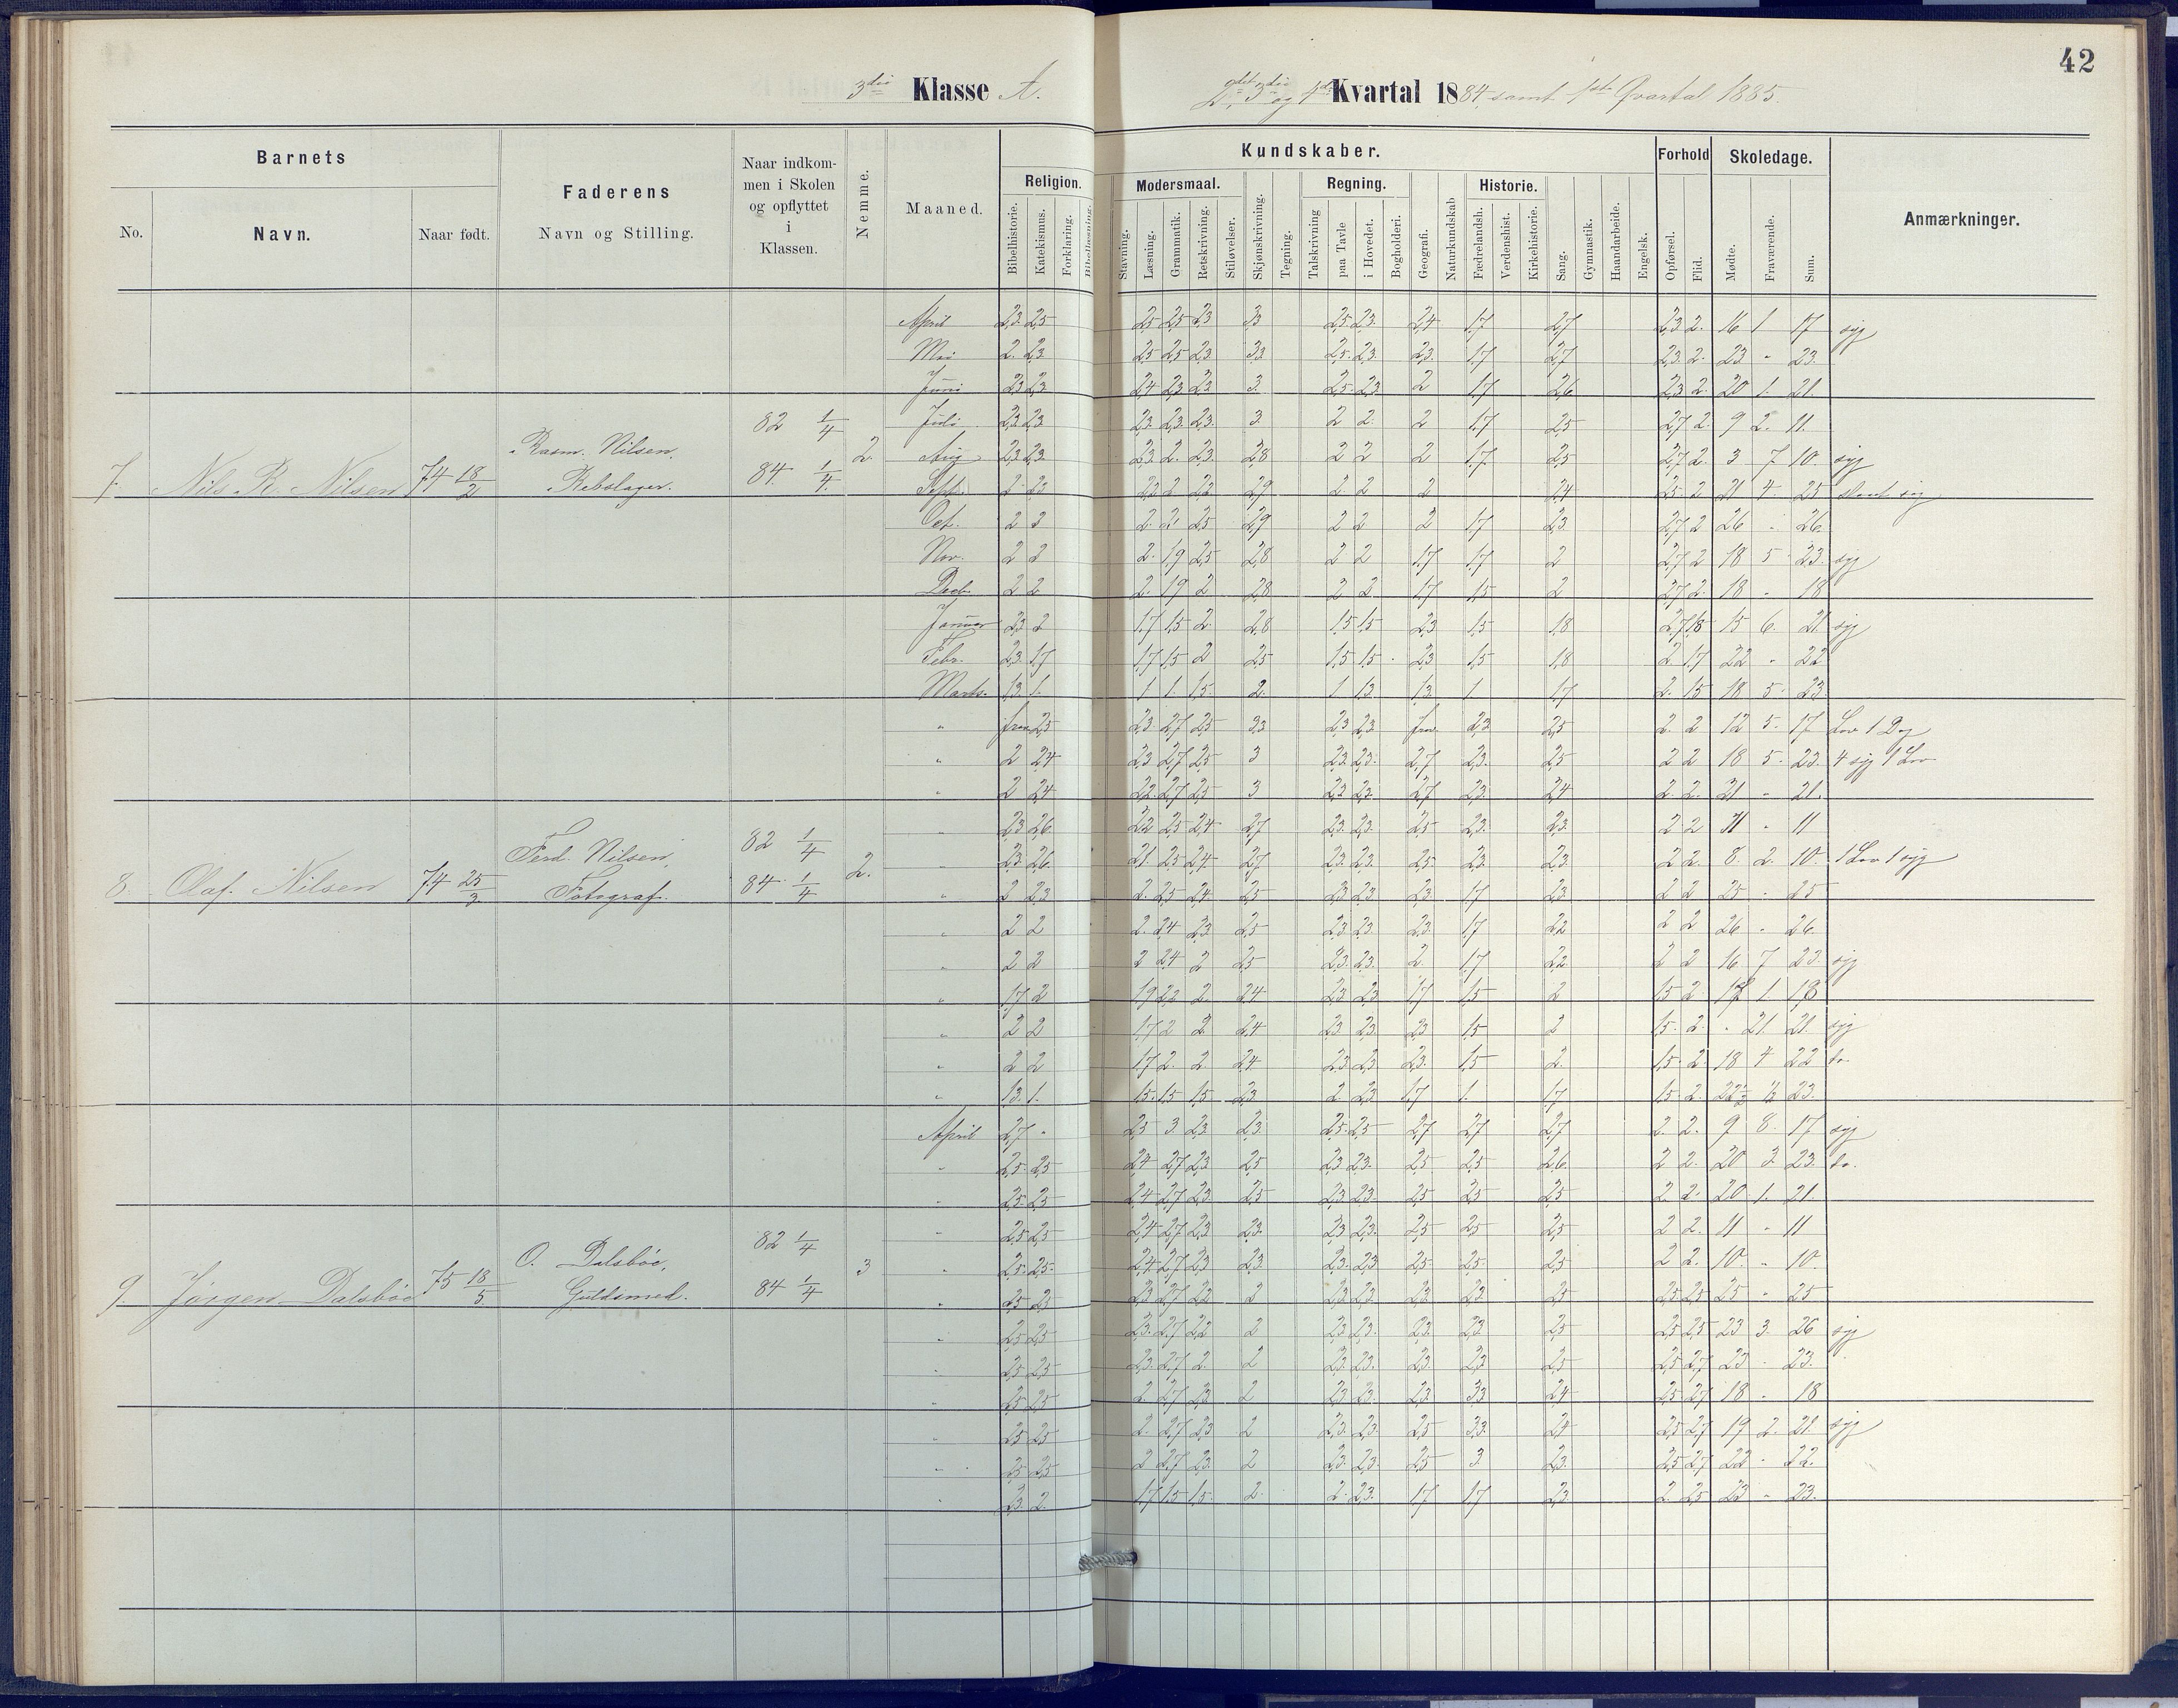 42
3die Klasse A.
2det, 3die og 4de Kvartal 1884, samt 1ste Qvartal 1885.
Barnets
Faderens
Naar indkommen i Skolen og opflyttet i Klassen.
Nemme.
Maaned.
Kundskaber.
Forhold
Skoledage.
Anmærkninger.
No.
Navn.
Naar født.
Navn og Stilling.
Religion.
Modersmaal.
Regning.
Historie.
Bibelhistorie. Katekismus. Forklaring. Bibellæsning. Stavning. Læsning. Grammatik. Retskrivning. Stiløvelser. Skjønskrivning. Tegning. Talskrivning paa Tavle i Hovedet. Bogholderi. Geografi. Naturkundskab Fædrelandsh. Verdenshist. Kirkehistorie. Sang. Gymnastik. Haandarbeide. Engelsk. Opførsel. Flid. Mødte. Fraværende. Sum.
April 2,3 2,5 2,5 2,5 2,3 3,3 2,5 2,3 2,4 1,7 2,7 2,3 2 16 1 17 syg
Mai 2 2,3 2,5 2,5 2,3 3,3 2,5 2,3 2,3 1,7 2,7 2,3 2 23 " 23
Juni 2,3 2,3 2,4 2,3 2,3 3 2,5 2,3 2 1,7 2,6 2,3 2 20 1 21
Juli 2,3 2,3 2,3 2,3 2,3 3 2 2 2 1,7 2,5 2,7 2 9 2 11
Aug 2,3 2,3 2,3 2 2,3 2,8 2 2 2 1,7 2,5 2,7 2 3 7 10 syg
7. Nils R. Nilsen 74 18/2 Rasm. Nilsen, Rebslager. 82 1/4 84 1/4 2.
Sept. 2 2,3 2,2 2 2,3 2,9 2 2 2 2,4 2,5 2 21 4 25 syg
Oct. 2 2 2 2 2,5 2,9 2 2 2 1,7 2,3 2,7 2 26 " 26
Nov. 2 2 2 1,9 2,5 2,8 2 2 1,7 1,7 2 2,7 2 18 5 23 syg
Decb. 2 2 2 1,9 2 2,8 2 2 1,7 1,5 2 2,7 2 18 " 18
Januar 2,3 2 1,7 1,5 2 2,8 1,5 1,5 2,3 1,5 1,8 2,7 1,8 15 6 21 syg
Febr. 2,3 1,7 1,7 1,5 2 2,5 1,5 1,5 2,3 1,5 1,8 2 1,7 22 " 22
Marts. 1,3 1 1 1 1,5 2 1 1,3 1,3 1 1,7 2 1,5 18 5 23
" frav 2,5 2,3 2,7 2,5 3,3 2,3 2,3 frav. 2,3 2,5 2 2 12 5 17 Lov 1 Dag
" 2 2,4 2,3 2,7 2,5 3 2,3 2,3 2,7 2,3 2,5 2 2 18 5 23 4 syg 1 Lov
" 2 2,4 2,2 2,7 2,5 3 2,3 2,3 2,7 2,3 2,4 2 2 21 " 21
" 2,3 2,6 2,2 2,5 2,4 2,7 2,3 2,3 2,5 2,3 2,3 2 2 11 " 11
" 2,3 2,6 2,1 2,5 2,4 2,7 2,3 2,3 2,5 2,3 2,3 2 2 8 2 10 1 Lov 1 syg
8. Olaf Nilsen 74 25/3 Ferd. Nilsen, Fotograf. 82 1/4 84 1/4 2.
" 2 2,3 2 2,5 2,4 2,5 2,3 2,3 2,3 1,7 2,3 2 2 25 " 25
" 2 2 2 2,4 2,3 2,5 2,3 2,3 2,3 1,7 2,2 2 2 26 " 26
" 2 2 2 2,4 2 2,5 2,3 2,3 2 1,7 2,2 2 2 16 7 23 syg
" 1,7 2 1,9 2,2 2 2,4 2,3 2,3 1,7 1,5 2 1,5 2 17 1 18
" 2 2 1,7 2 2 2,4 2,3 2,3 2,3 1,5 2 1,5 2 " 21 21 syg
" 2 2 1,7 2 2 2,4 2,3 2,3 2,3 1,5 2 1,5 2 18 4 22 do.
" 1,3 1 1,5 1,5 1,5 2,3 2 2,3 1,7 1 1,7 1,5 2 22 1/2 1/2 23
April 2,7 " 2,5 3 2,3 2,3 2,5 2,5 2,7 2,7 2,7 2 2 9 8 17 syg
" 2,5 2,5 2,4 2,7 2,3 2,5 2,3 2,3 2,5 2,5 2,6 2 2 20 3 23 do.
" 2,5 2,5 2,4 2,7 2,3 2,5 2,3 2,3 2,5 2,5 2,5 2 2 20 1 21
" 2,5 2,5 2,4 2,7 2,3 2,3 2,3 2,3 2,5 2,5 2,5 2 2 11 " 11
" 2,5 2,5 2,4 2,7 2,3 2,3 2,3 2,3 2,5 2,5 2,5 2 2 10 " 10
9. Jörgen Dalsböe 75 18/5 O. Dalsböe, Guldsmed. 82 1/4 84 1/4 3
" 2,5 2,5 2,3 2,7 2,2 2 2,3 2,3 2,3 2,3 2,5 2,5 2,5 25 " 25
" 2,5 2,5 2,3 2,7 2,2 2 2,3 2,3 2,3 2,3 2,5 2,5 2,5 23 3 26 syg
" 2,5 2,5 2,3 2,7 2 2 2,3 2,3 2,3 2,3 2,5 2,5 2,7 23 " 23
" 2,5 2,5 2 2,7 2,3 2 2,3 2,3 2,3 3,3 2,4 2,5 2,7 18 " 18
" 2,5 2,5 2 2,7 2,3 2 2,3 2,3 2,5 3,3 2,4 2,5 2,7 19 2 21 syg
" 2,5 2,5 2 2,7 2,3 2 2,3 2,3 2,5 3 2,3 2,5 2,7 22 " 22
" 2,3 2 1,7 1,5 1,5 2 2 2,3 1,7 1,7 2,3 2 2,5 23 " 23